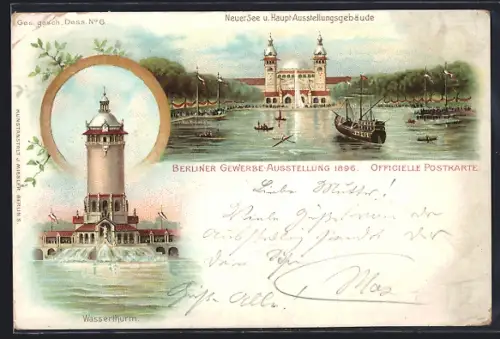 Ges. gesch. Dess. No 6.
Neuer See u. Haupt-Ausstellungsgebäude
KUNSTANSTALT J. MIESLER, BERLIN S.
BERLINER GEWERBE-AUSSTELLUNG 1896. OFFICIELLE POSTKARTE
Liebe Mutter!
Viele Grüße von der
Ausstellung sendet der
Dein Sohn
Max
Grüße Alle!
Wasserthurm.